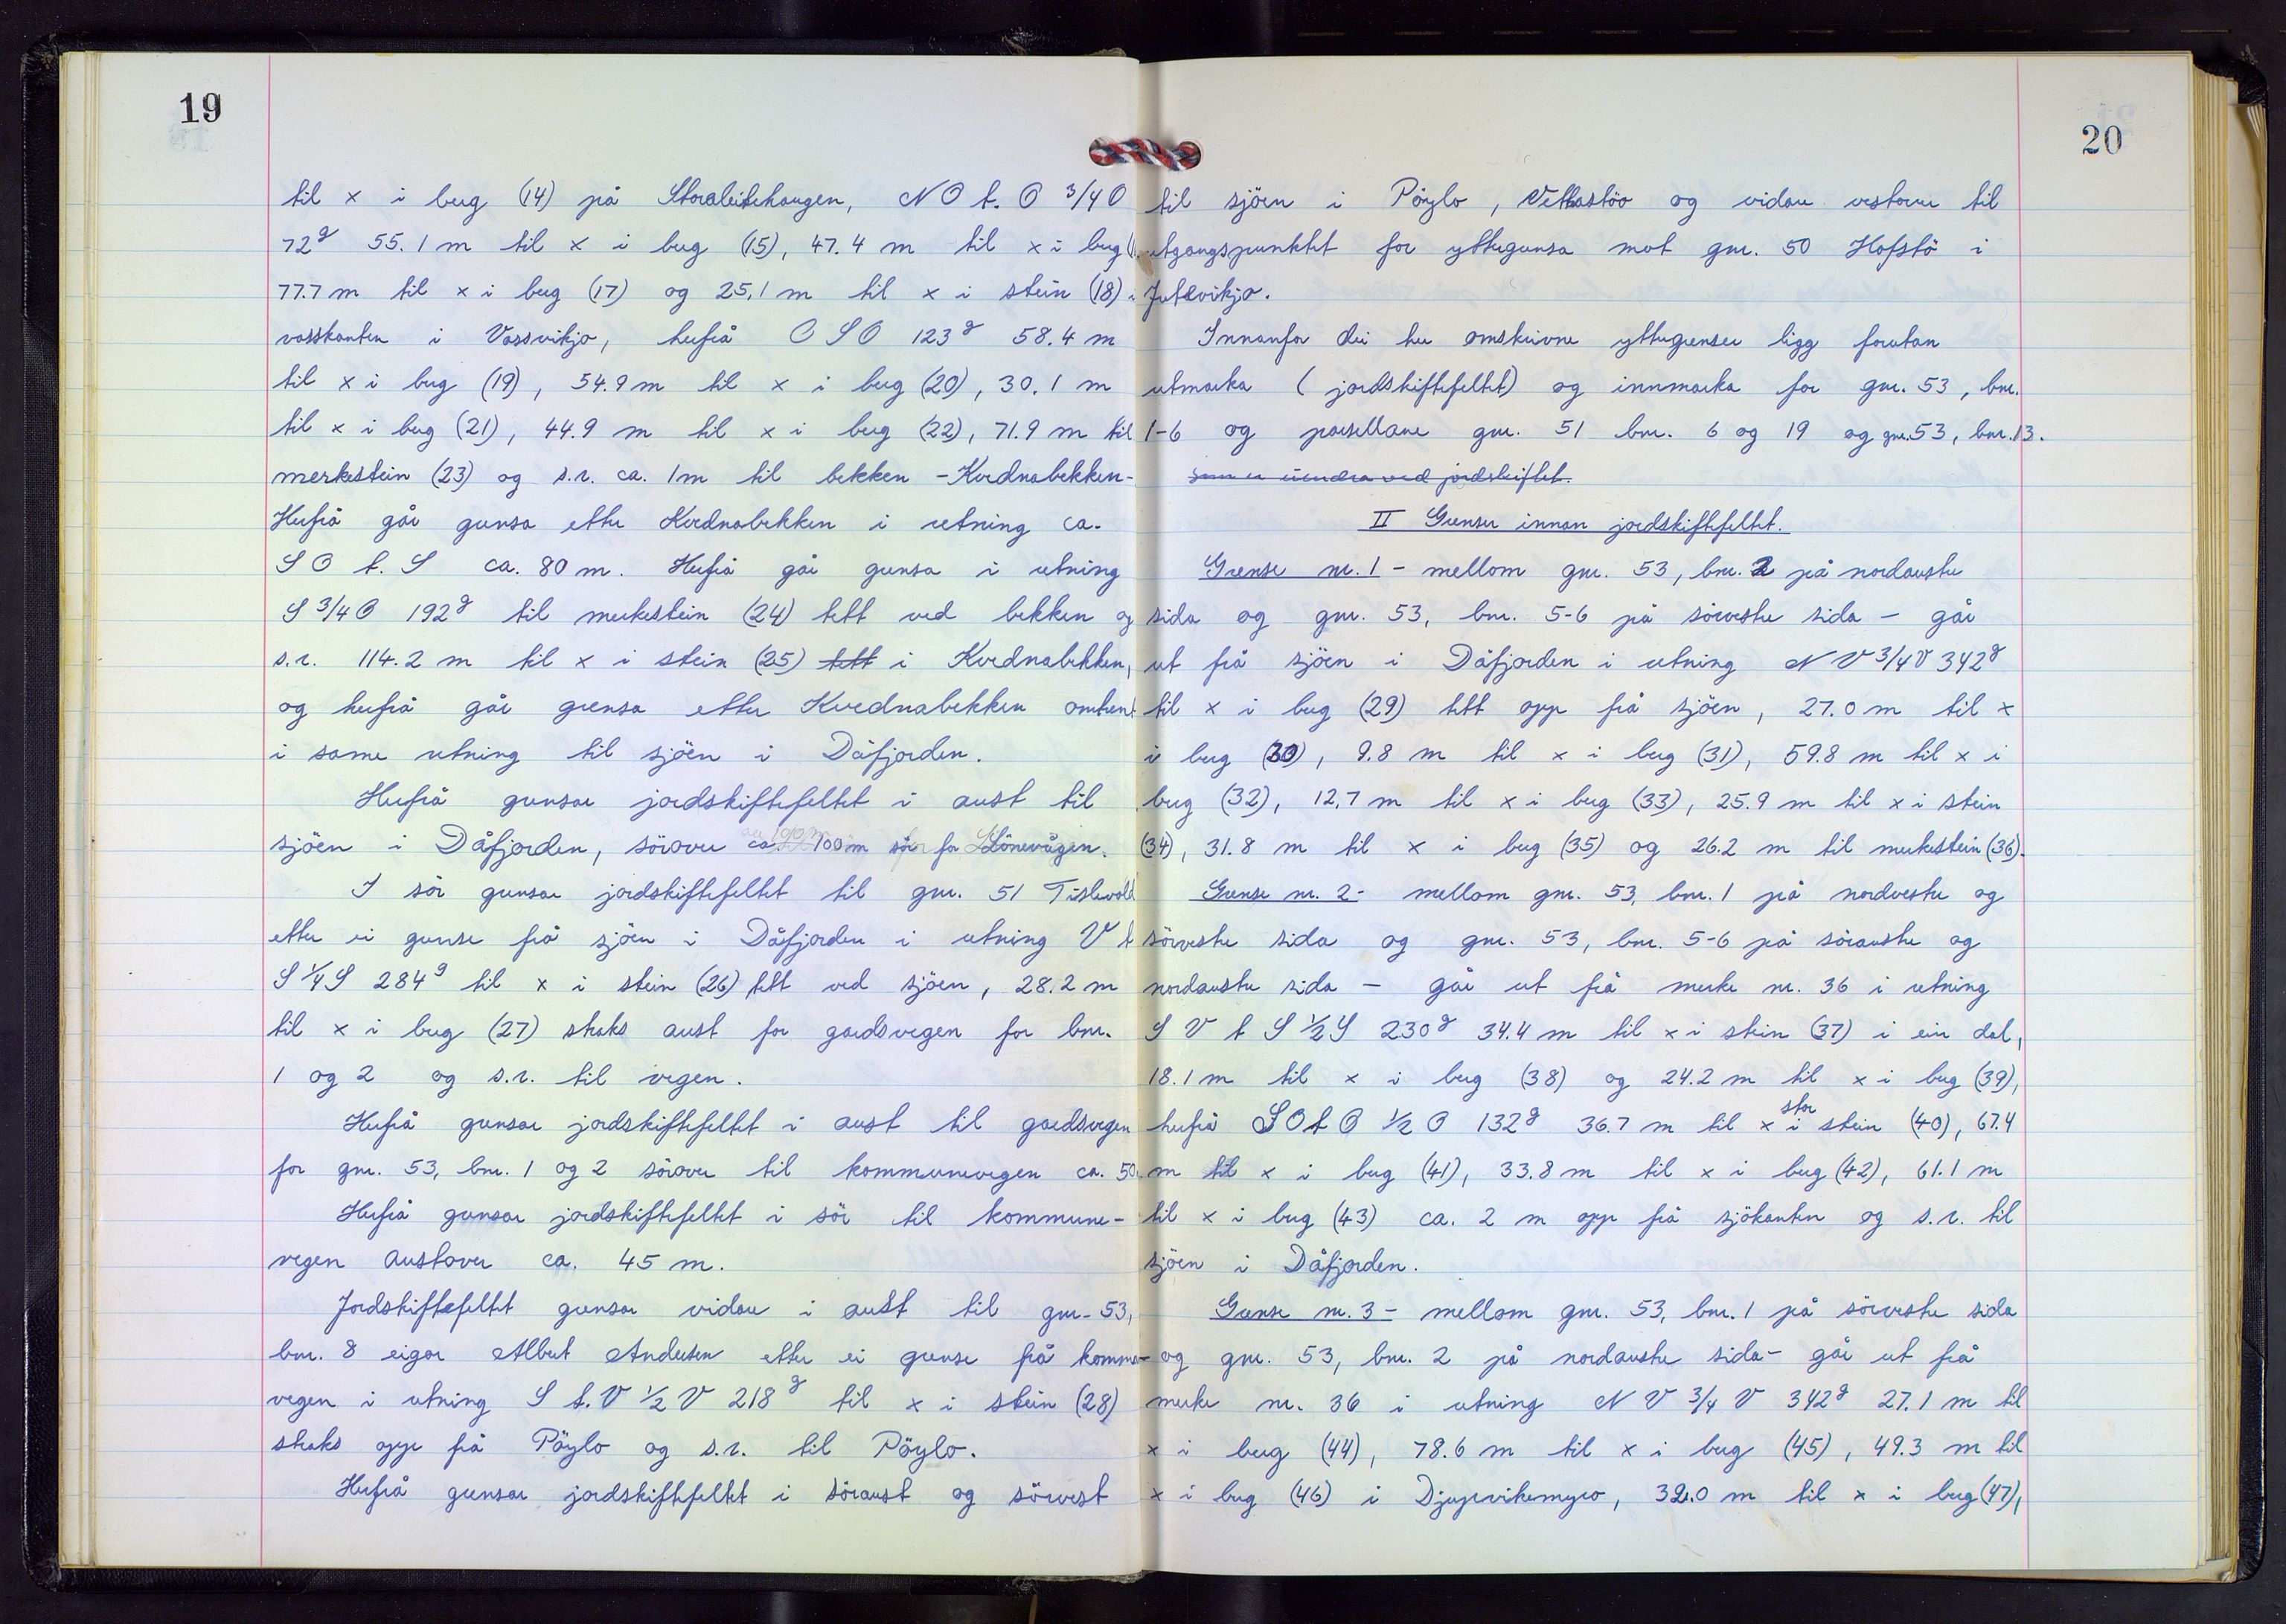 19
til x i berg (14) på Storaleitehaugen, N O t. O 3/4 O
72g 55.1 m til x i berg (15), 47.4 m til x i berg
77.7 m til x i berg (17) og 25,1 m til x i stein (18) i
vasskanten i Vassvikjo, herfrå O S O 123g 58.4 m
til x i berg (19), 54.9 m til x i berg (20), 30.1 m
til x i berg (21), 44.9 m til x i berg (22), 71.9 m til
merkestein (23) og s.r. ca. 1m til bekken - Kvednabekken-
Herfrå går grensa etter Kvednabekken i retning ca.
S O t. S ca. 80 m. Herfrå går grensa i retning
S 3/4 O 192g til merkestein (24) tett ved bekken og
s.r. 114.2 m til x i stein (25) tett i Kvednabekken,
og herfrå går grensa etter Kvednabekken omtent
i same retning til sjöen i Dåfjorden.
Herfrå grensar jordskiftefeltet i aust til
sjöen i Dåfjorden, sörover ca. 100 m sör for Lönevågen.
I sör grensar jordskiftefeltet til gnr. 51 Tislevold
etter ei grense frå sjöen i Dåfjorden i retning V t
S 1/4 S 284g til x i stein (26) tett ved sjöen, 28.2 m
til x i berg (27) straks aust for gardsvegen for bnr.
1 og 2 og s.r. til vegen.
Herfrå grensar jordskiftefeltet i aust til gardsvegen
for gnr. 53, bnr. 1 og 2 sörover til kommunevegen ca. 50
Herfrå grensar jordskiftefeltet i sör til kommune-
vegen austover ca. 45 m.
Jordskiftefeltet grensar vidare i aust til gnr. 53,
bnr. 8 eigar Albert Andersen etter ei grense frå kommune-
vegen i retning S t. V 1/2 V 218g til x i stein (28)
straks opp frå Pöylo og s.r. til Pöylo.
Herfrå grensar jordskiftefeltet i söraust og sörvest
20
til sjöen i Pöylo, Vettastöo og vidare vestover til
utgangspunktet for yttergrensa mot gnr. 50 Hofstö i
Jutevikjo.
Innanfor dei her omskrivne yttergrenser ligg forutan
utmarka (jordskiftefeltet) og innmarka for gnr. 53, bnr.
1-6 og parsellane gnr. 51 bnr. 6 og 19 og gnr. 53, bnr. 13.
som er uendra ved jordskiftet.
II Grenser innan jordskiftefeltet.
Grense nr. 1 - mellom gnr. 53, bnr. 2 på nordaustre
sida og gnr. 53, bnr. 5-6 på sörvestre sida - går
ut frå sjöen i Dåfjorden i retning N V 3/4 V 342g
til x i berg (29) tett opp frå sjöen, 27.0 m til x
i berg (30), 9.8 m til x i berg (31), 59.8 m til x i
berg (32), 12,7 m til x i berg (33), 25.9 m til x i stein
(34), 31.8 m til x i berg (35) og 26.2 m til merkestein (36).
Grense nr. 2 - mellom gnr. 53, bnr. 1 på nordvestre og
sörvestre sida og gnr. 53, bnr. 5-6 på söraustre og
nordaustre sida - går ut frå merke nr. 36 i retning
S V t S 1/2 S 230g 34.4 m til x i stein (37) i ein dal,
18.1 m til x i berg (38) og 24.2 m til x i berg (39),
herfrå S O t O 1/2 O 132g 36.7 m til x i stor stein (40), 67.4
m til x i berg (41), 33.8 m til x i berg (42), 61.1 m
til x i berg (43) ca. 2 m opp frå sjökanten og s.r. til
sjöen i Dåfjorden.
Grense nr. 3 - mellom gnr. 53, bnr. 1 på sörvestre sida
og gnr. 53, bnr. 2 på nordaustre sida - går ut frå
merke nr. 36 i retning N V 3/4 V 342g 27.1 m til
x i berg (44), 78.6 m til x i berg (45), 49.3 m til
x i berg (46) i Djupevikemyro, 32.0 m til x i berg (47),